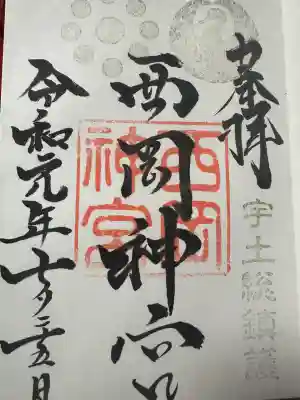 奉拝
宇土総鎮護
西岡神宮
西岡
神宮
令和元年七月二十五日